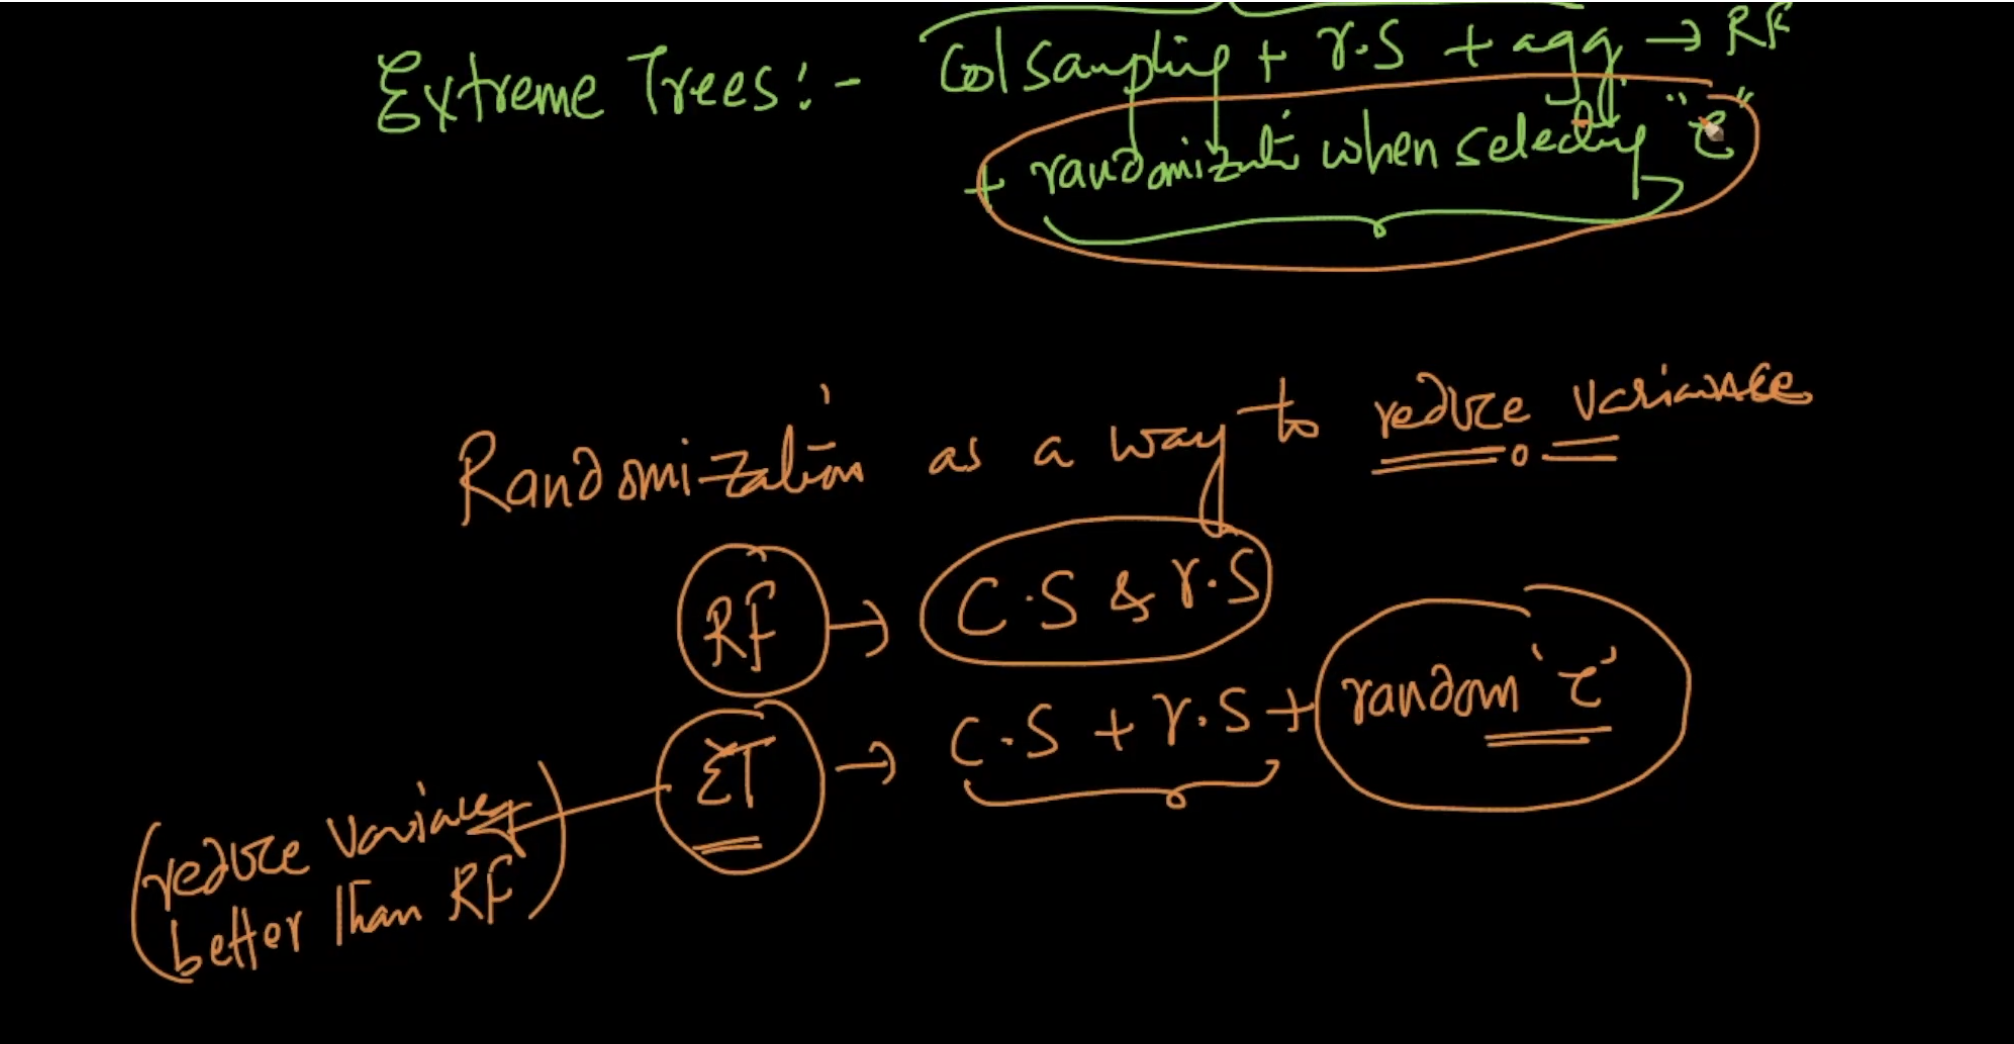 Extreme Trees:- Col Sampling + r.S + agg → RF
+ randomizatn when selecting "τ"
Randomization as a way to reduce variance
RF → C.S & r.S
ET → C.S + r.S + random 'τ'
(reduce variance
better than RF)